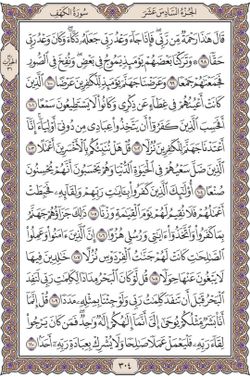 الجُزْءُ السَّادِسَ عَشَرَ
سُورَةُ الكَهْفِ
قَالَ هَٰذَا رَحْمَةٌ مِّن رَّبِّي فَإِذَا جَآءَ وَعْدُ رَبِّي جَعَلَهُۥ دَكَّآءَ وَكَانَ وَعْدُ رَبِّي
حَقًّا ٩٨ وَتَرَكْنَا بَعْضَهُمْ يَوْمَئِذٍ يَمُوجُ فِي بَعْضٍ وَنُفِخَ فِي الصُّورِ
فَجَمَعْنَٰهُمْ جَمْعًا ٩٩ وَعَرَضْنَا جَهَنَّمَ يَوْمَئِذٍ لِّلْكَٰفِرِينَ عَرْضًا ١٠٠ الَّذِينَ
كَانَتْ أَعْيُنُهُمْ فِي غِطَآءٍ عَن ذِكْرِي وَكَانُوا لَا يَسْتَطِيعُونَ سَمْعًا
١٠١ أَفَحَسِبَ الَّذِينَ كَفَرُوٓا أَن يَتَّخِذُوا عِبَادِي مِن دُونِيٓ أَوْلِيَآءَ إِنَّآ
أَعْتَدْنَا جَهَنَّمَ لِلْكَٰفِرِينَ نُزُلًا ١٠٢ قُلْ هَلْ نُنَبِّئُكُم بِالْأَخْسَرِينَ أَعْمَٰلًا ١٠٣
الَّذِينَ ضَلَّ سَعْيُهُمْ فِي الْحَيَوٰةِ الدُّنْيَا وَهُمْ يَحْسَبُونَ أَنَّهُمْ يُحْسِنُونَ
صُنْعًا ١٠٤ أُولَٰٓئِكَ الَّذِينَ كَفَرُوا بِـَٔايَٰتِ رَبِّهِمْ وَلِقَآئِهِۦ فَحَبِطَتْ
أَعْمَٰلُهُمْ فَلَا نُقِيمُ لَهُمْ يَوْمَ الْقِيَٰمَةِ وَزْنًا ١٠٥ ذَٰلِكَ جَزَآؤُهُمْ جَهَنَّمُ
بِمَا كَفَرُوا وَاتَّخَذُوٓا ءَايَٰتِي وَرُسُلِي هُزُوًا ١٠٦ إِنَّ الَّذِينَ ءَامَنُوا وَعَمِلُوا
الصَّٰلِحَٰتِ كَانَتْ لَهُمْ جَنَّٰتُ الْفِرْدَوْسِ نُزُلًا ١٠٧ خَٰلِدِينَ فِيهَا
لَا يَبْغُونَ عَنْهَا حِوَلًا ١٠٨ قُل لَّوْ كَانَ الْبَحْرُ مِدَادًا لِّكَلِمَٰتِ رَبِّي لَنَفِدَ
الْبَحْرُ قَبْلَ أَن تَنفَدَ كَلِمَٰتُ رَبِّي وَلَوْ جِئْنَا بِمِثْلِهِۦ مَدَدًا ١٠٩ قُلْ إِنَّمَآ
أَنَا۠ بَشَرٌ مِّثْلُكُمْ يُوحَىٰٓ إِلَيَّ أَنَّمَآ إِلَٰهُكُمْ إِلَٰهٌ وَٰحِدٌ فَمَن كَانَ يَرْجُوا
لِقَآءَ رَبِّهِۦ فَلْيَعْمَلْ عَمَلًا صَٰلِحًا وَلَا يُشْرِكْ بِعِبَادَةِ رَبِّهِۦٓ أَحَدًا ١١٠
٣٠٤